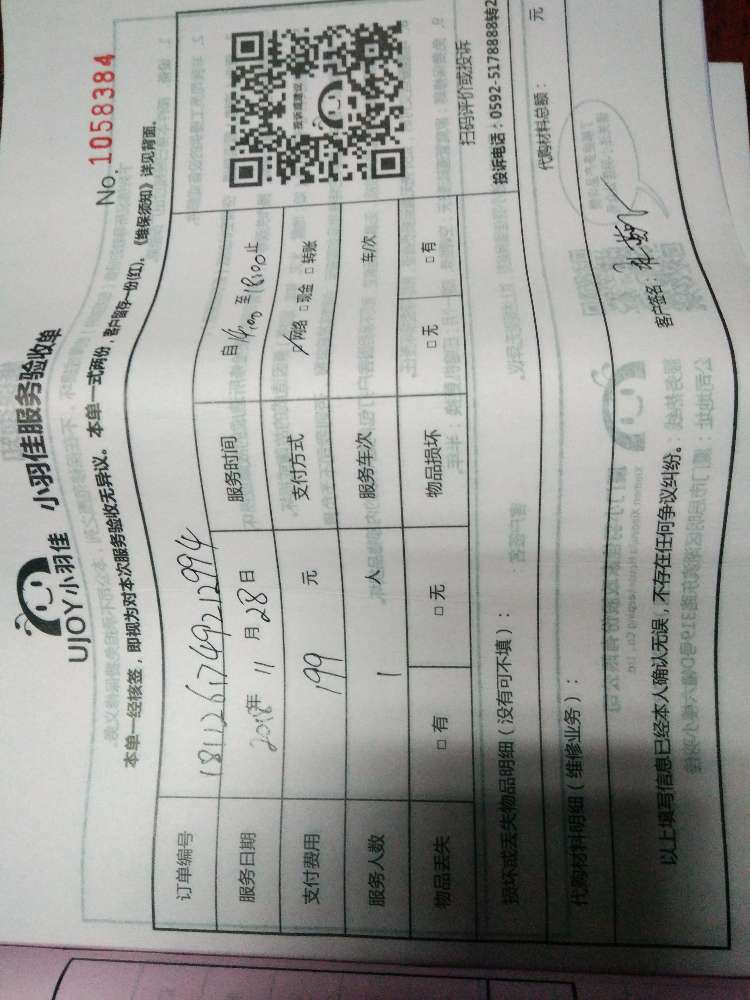 UJOY小羽佳 小羽佳服务验收单
No. 1058384
本单一经核签，即视为对本次服务验收无异议。 本单一式两份，客户留存一份(红)。《维保须知》详见背面。
订单编号 1811261749212994
服务日期 2018年 11 月 28 日 服务时间 自 14:00 至 18:00 止
支付费用 199 元 支付方式 ☑网络 □现金 □转账
服务人数 1 人 服务车次 车/次
物品丢失 □有 □无 物品损坏 □无 □有
投诉或建议
扫码评价或投诉
投诉电话：0592-5178888转2
损坏或丢失物品明细（没有可不填）：
代购材料明细（维修业务）： 代购材料总额： 元
以上填写信息已经本人确认无误，不存在任何争议纠纷。 客户签名：